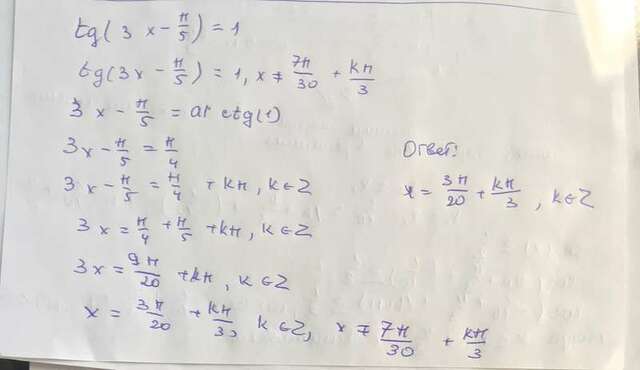 tg(3x - π/5) = 1
tg(3x - π/5) = 1, x ≠ 7π/30 + kπ/3
3x - π/5 = arctg(1)
3x - π/5 = π/4
3x - π/5 = π/4 + kπ, k ∈ Z
3x = π/4 + π/5 + kπ, k ∈ Z
3x = 9π/20 + kπ, k ∈ Z
x = 3π/20 + kπ/3, k ∈ Z, x ≠ 7π/30 + kπ/3
Ответ:
x = 3π/20 + kπ/3, k ∈ Z